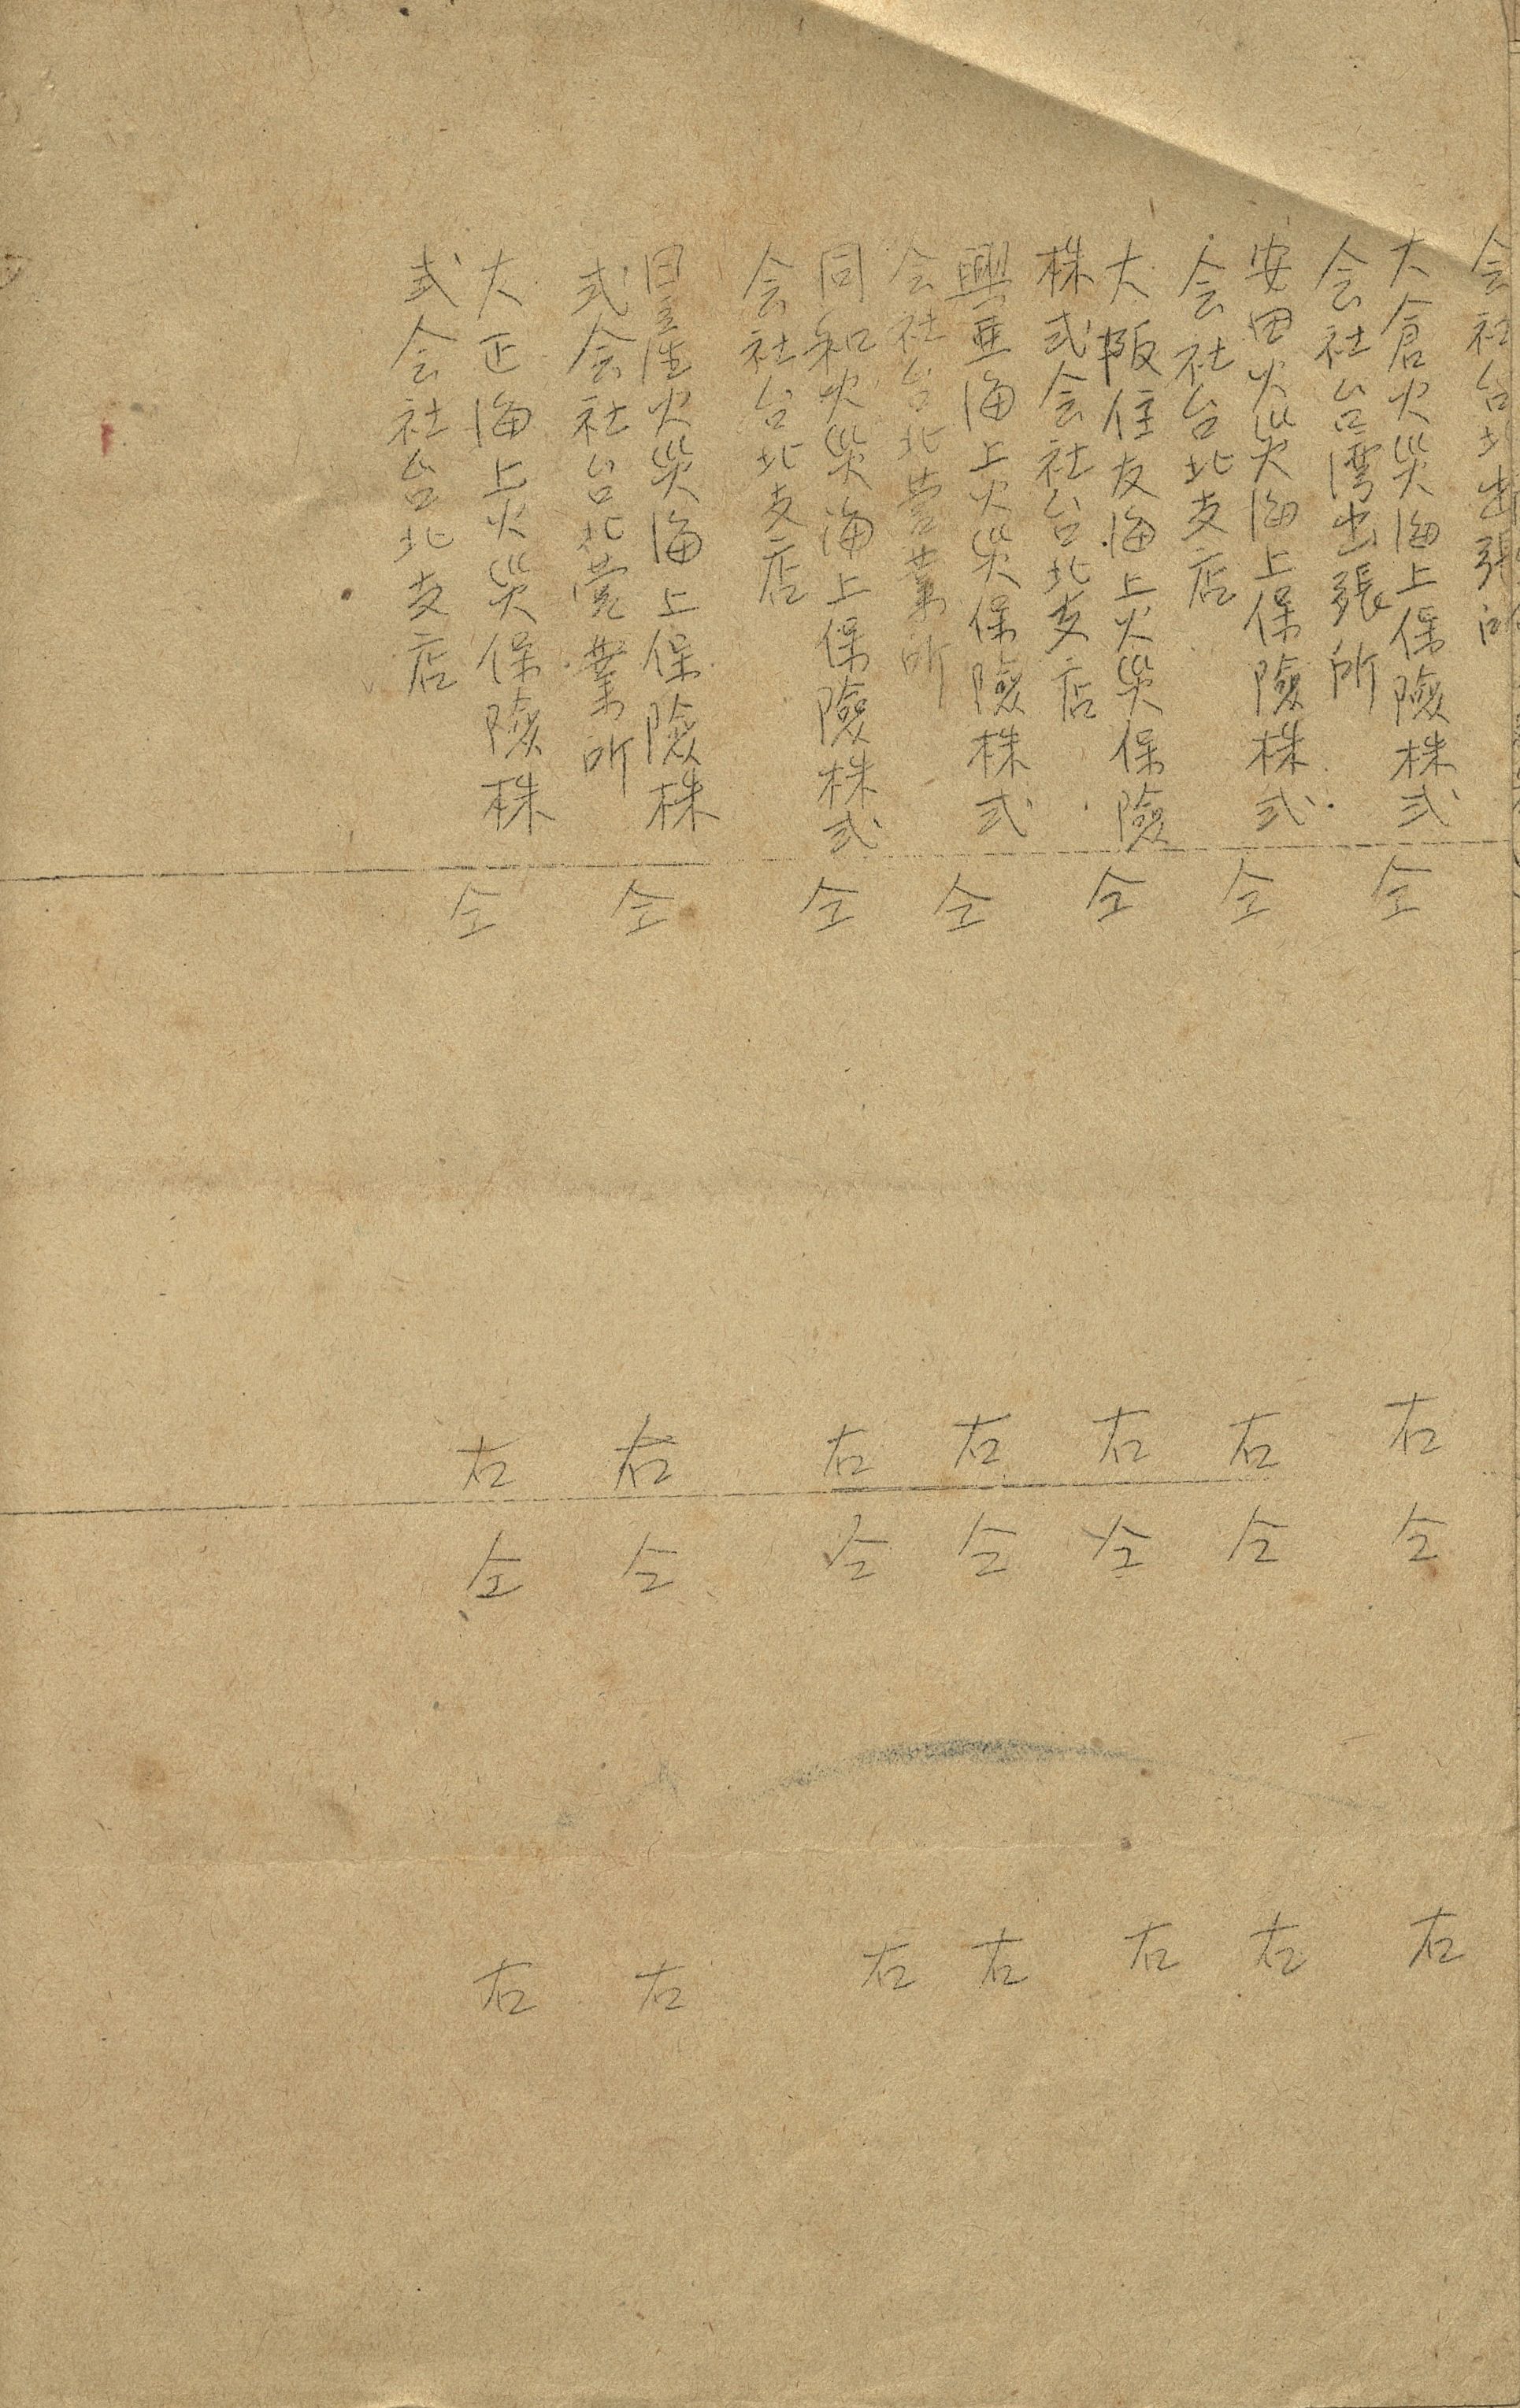 会社台北出張所
大倉火災海上保險株式
会社台湾出張所
仝
右
仝
右
安田火災海上保險株式
会社台北支店
仝
右
仝
右
大阪住友海上火災保險
株式会社台北支店
仝
右
仝
右
興亜海上火災保險株式
会社台北営業所
仝
右
仝
右
同和火災海上保險株式
会社台北支店
仝
右
仝
右
日産火災海上保險株
式会社台北営業所
仝
右
仝
右
大正海上火災保險株
式会社台北支店
仝
右
仝
右